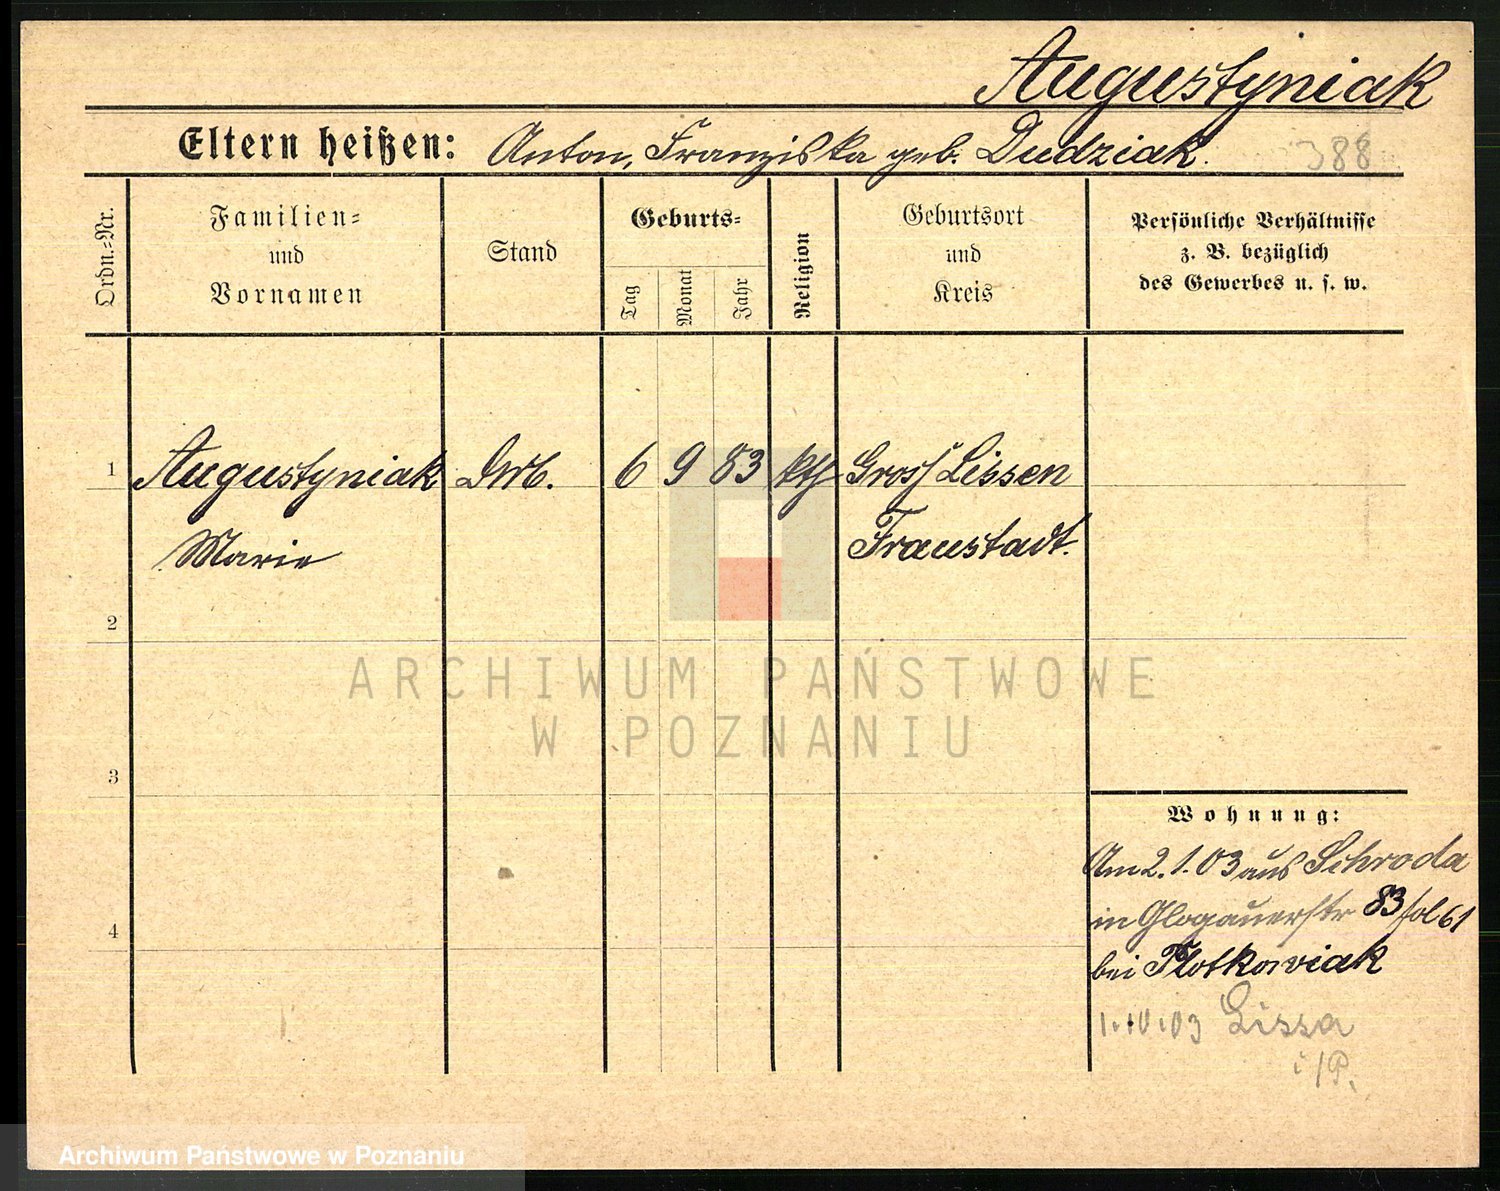 Augustyniak
Eltern heißen: Anton, Franziska geb. Dudziak. 388
Ordn.=Nr.
Familien=
und
Vornamen
Stand
Geburts=
Tag
Monat
Jahr
Religion
Geburtsort
und
Kreis
Persönliche Verhältnisse
z. B. bezüglich
des Gewerbes u. s. w.
1 Augustyniak 6 9 83 kth Gross Lissen
Marie Fraustadt.
2
ARCHIWUM PAŃSTWOWE
W POZNANIU
3
Wohnung:
Am 2.1.03 aus Schroda
in Glogauerstr 83 fol 61
4
bei
1.10.03 Lissa
i/P.
Archiwum Państwowe w Poznaniu